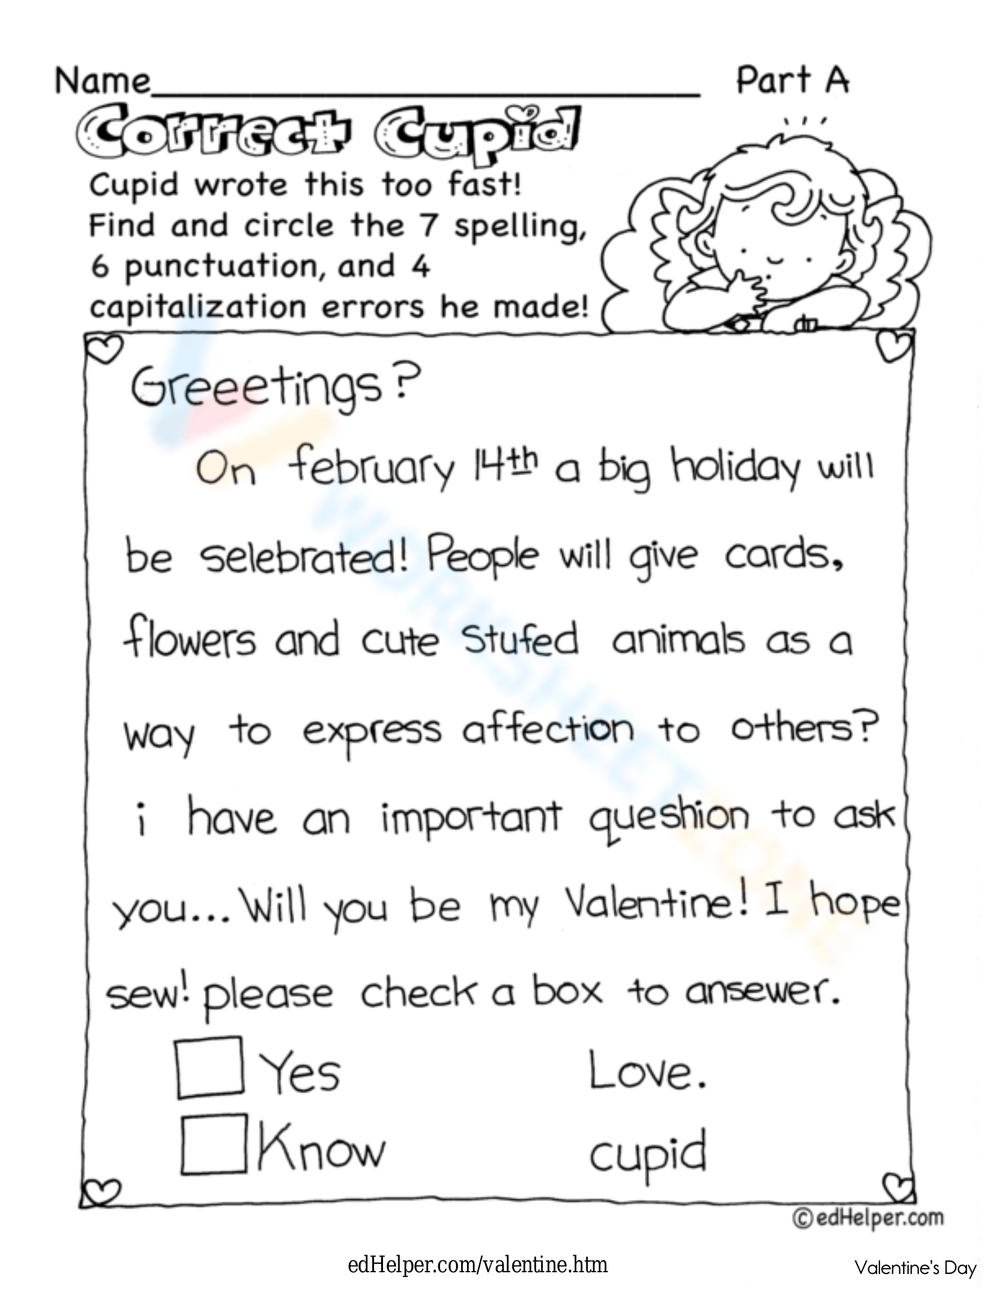 Name Part A
Correct Cupid
Cupid wrote this too fast!
Find and circle the 7 spelling,
6 punctuation, and 4
capitalization errors he made!
Greeetings?
On february 14th a big holiday will
be selebrated! People will give cards,
flowers and cute Stufed animals as a
way to express affection to others?
i have an important queshion to ask
you... Will you be my Valentine! I hope
sew! please check a box to ansewer.
Yes Love.
Know cupid
©edHelper.com
edHelper.com/valentine.htm Valentine's Day
WORKSHEETZONE